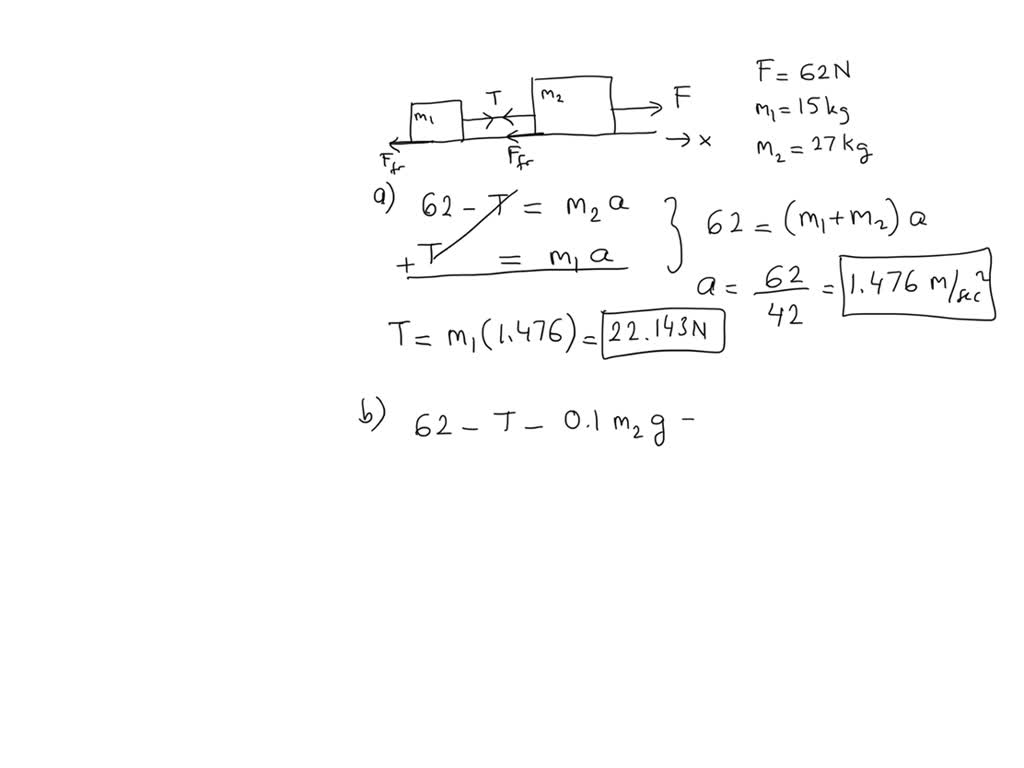 m₁ T m₂ F
F_fr F_fr → x
F = 62N
m₁ = 15 kg
m₂ = 27 kg
a) 62 - T = m₂ a
+ T = m₁ a
} 62 = (m₁+m₂) a
a = 62/42 = 1.476 m/sec²
T = m₁(1.476) = 22.143N
b) 62 - T - 0.1 m₂ g -